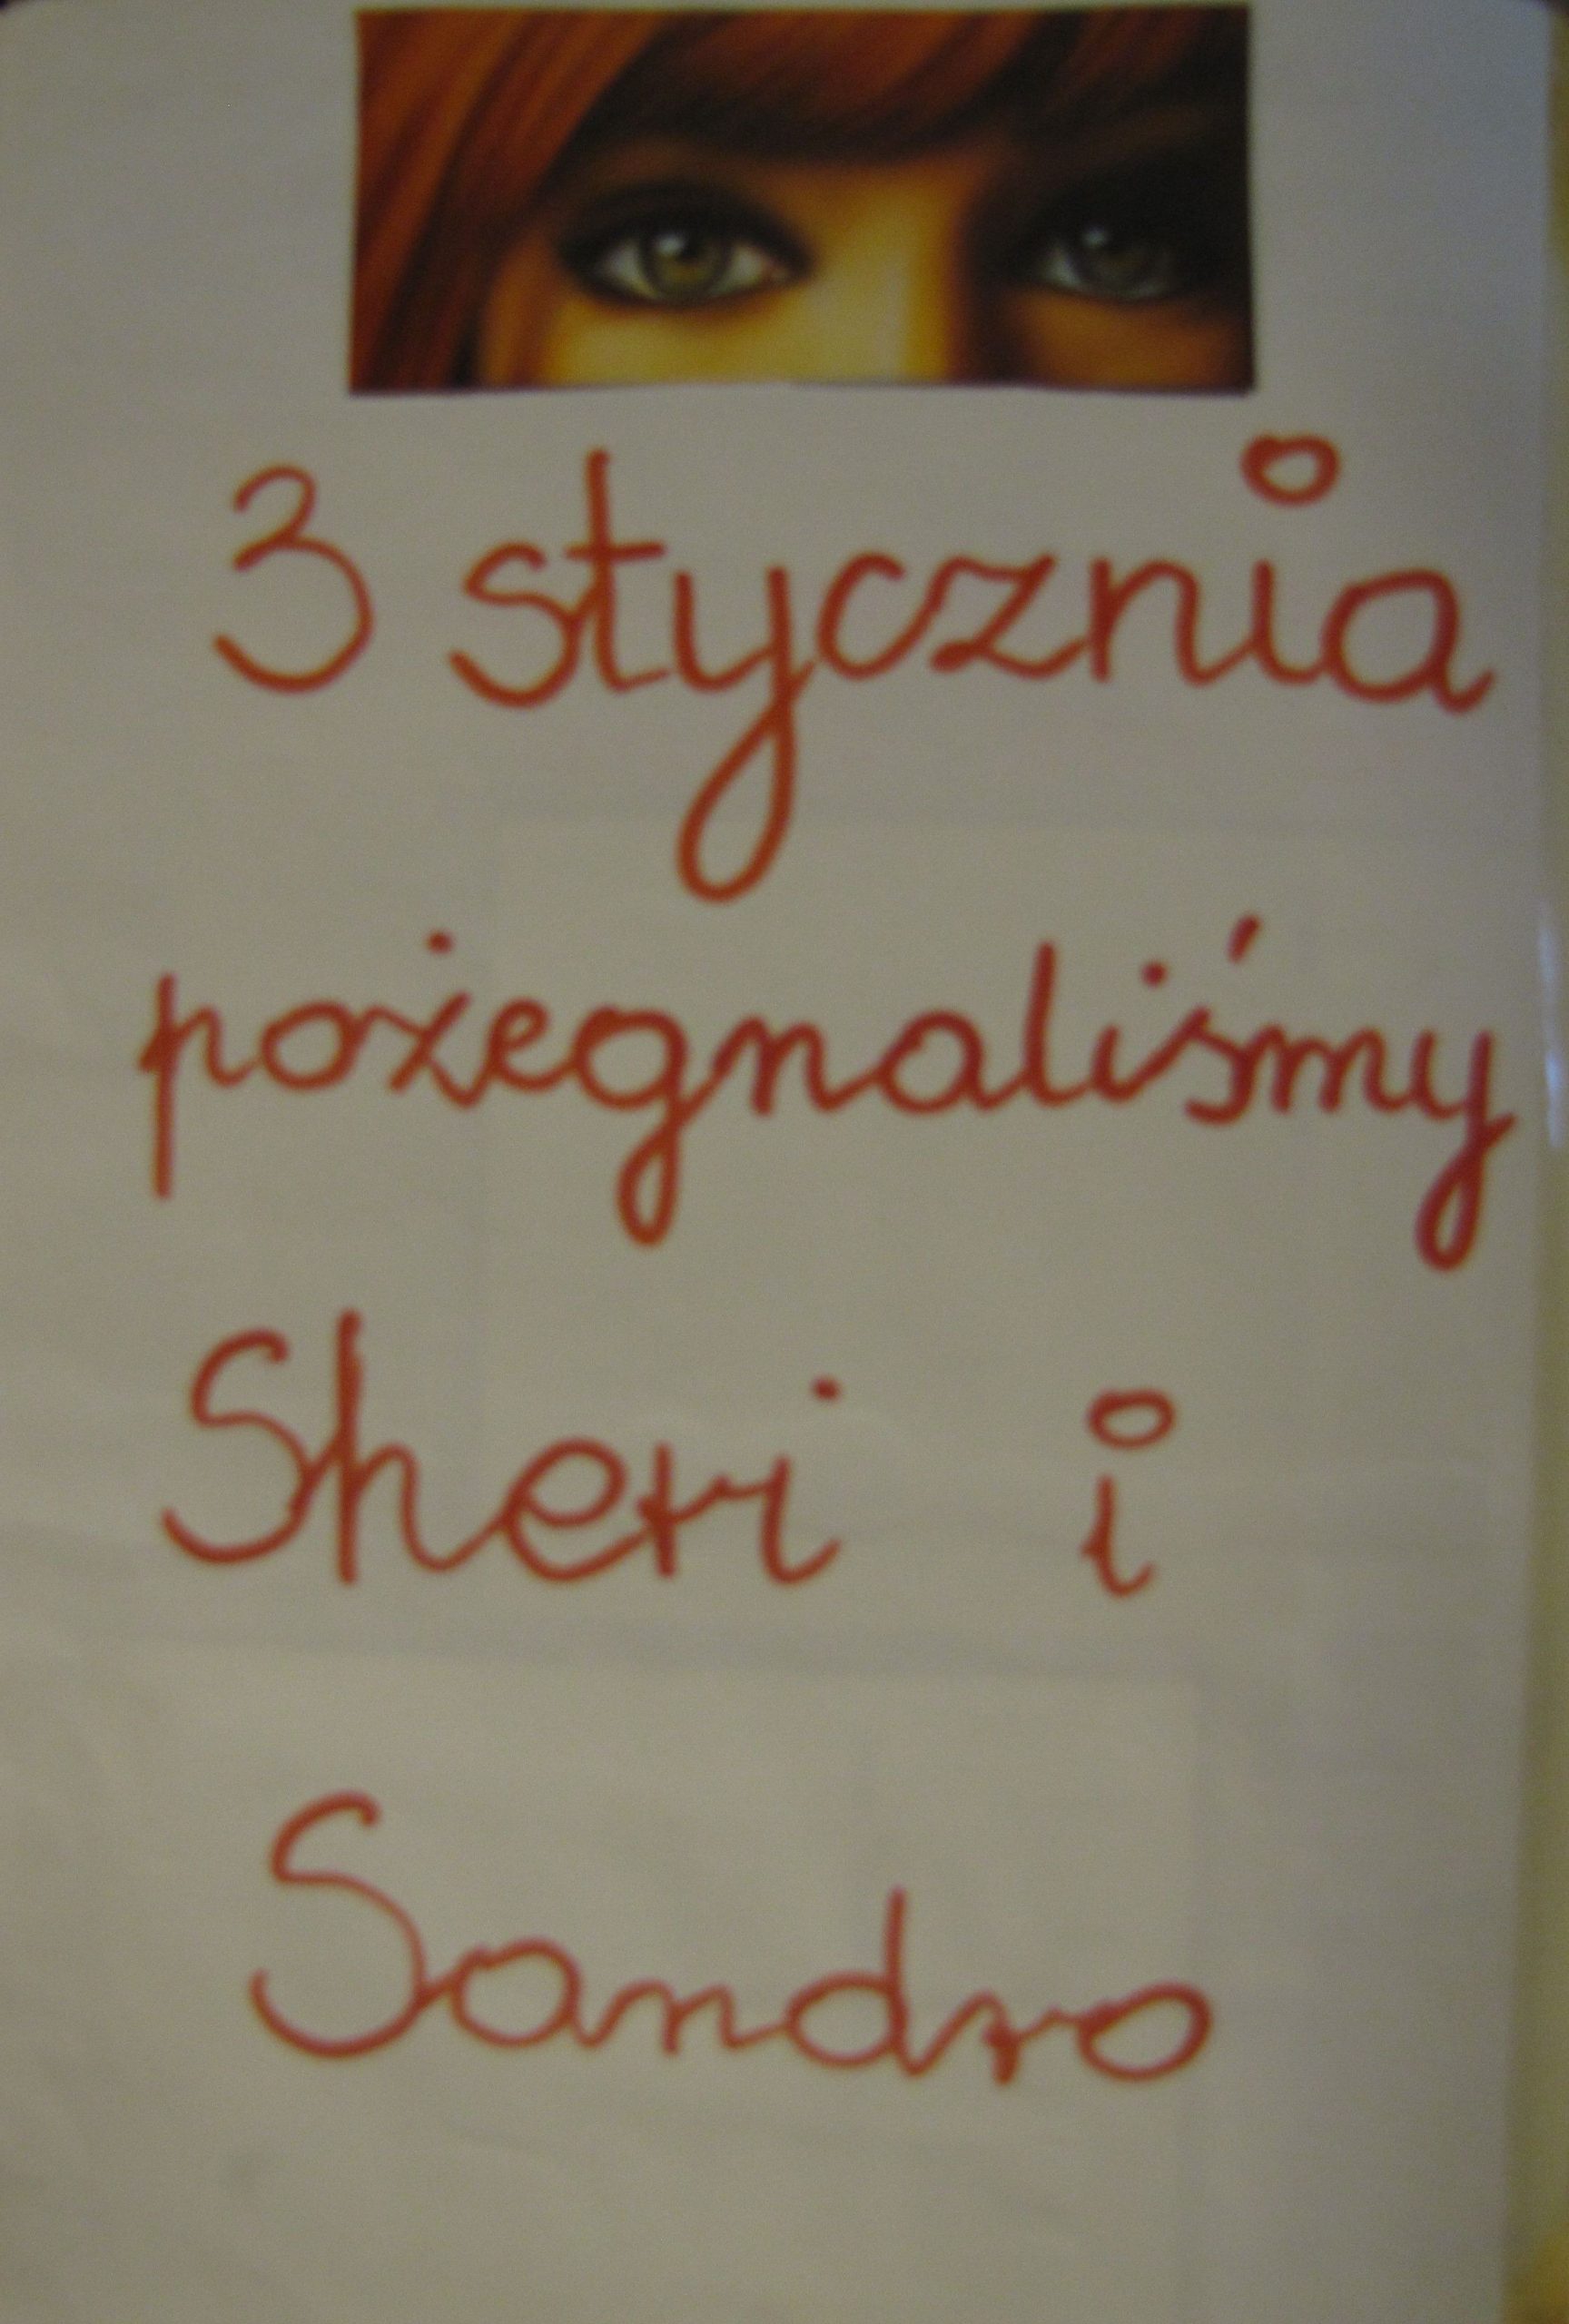 3 stycznia
pożegnaliśmy
Sheri i
Sandro